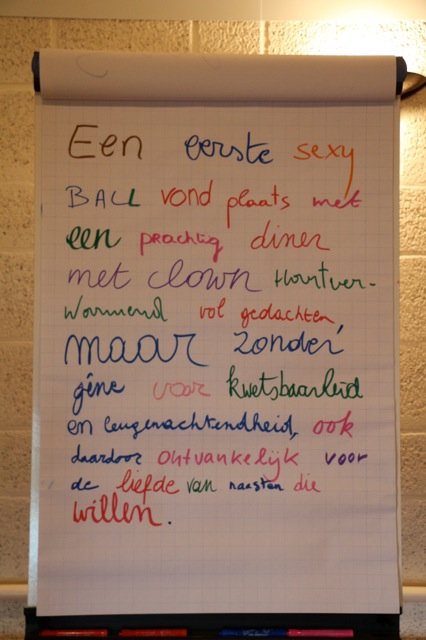 Een eerste sexy
BALL vond plaats met
een prachtig diner
met clown Hartver-
warmend vol gedachten,
maar zonder
gêne voor kwetsbaarheid
en leugenachtendheid, ook
daardoor ontvankelijk voor
de liefde van naasten die
willen.